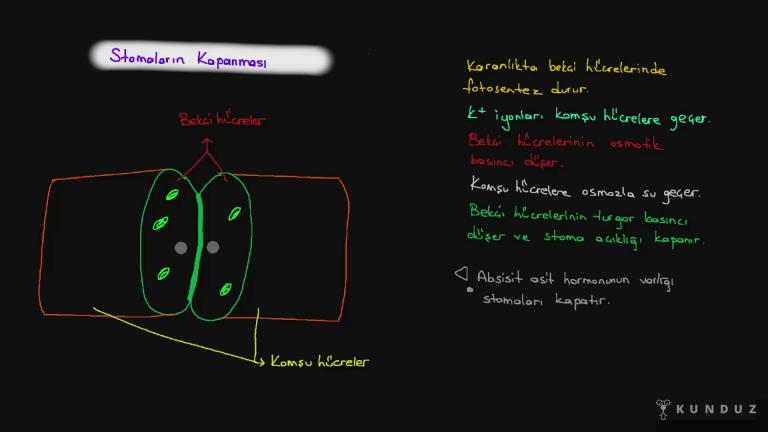 Stomaların Kapanması
Bekçi hücreler
Komşu hücreler
Karanlıkta bekçi hücrelerinde
fotosentez durur.
K+ iyonları komşu hücrelere geçer.
Bekçi hücrelerinin osmotik
basıncı düşer.
Komşu hücrelere osmozla su geçer.
Bekçi hücrelerinin turgor basıncı
düşer ve stoma açıklığı kapanır.
Absisit asit hormonunun varlığı
stomaları kapatır.
KUNDUZ